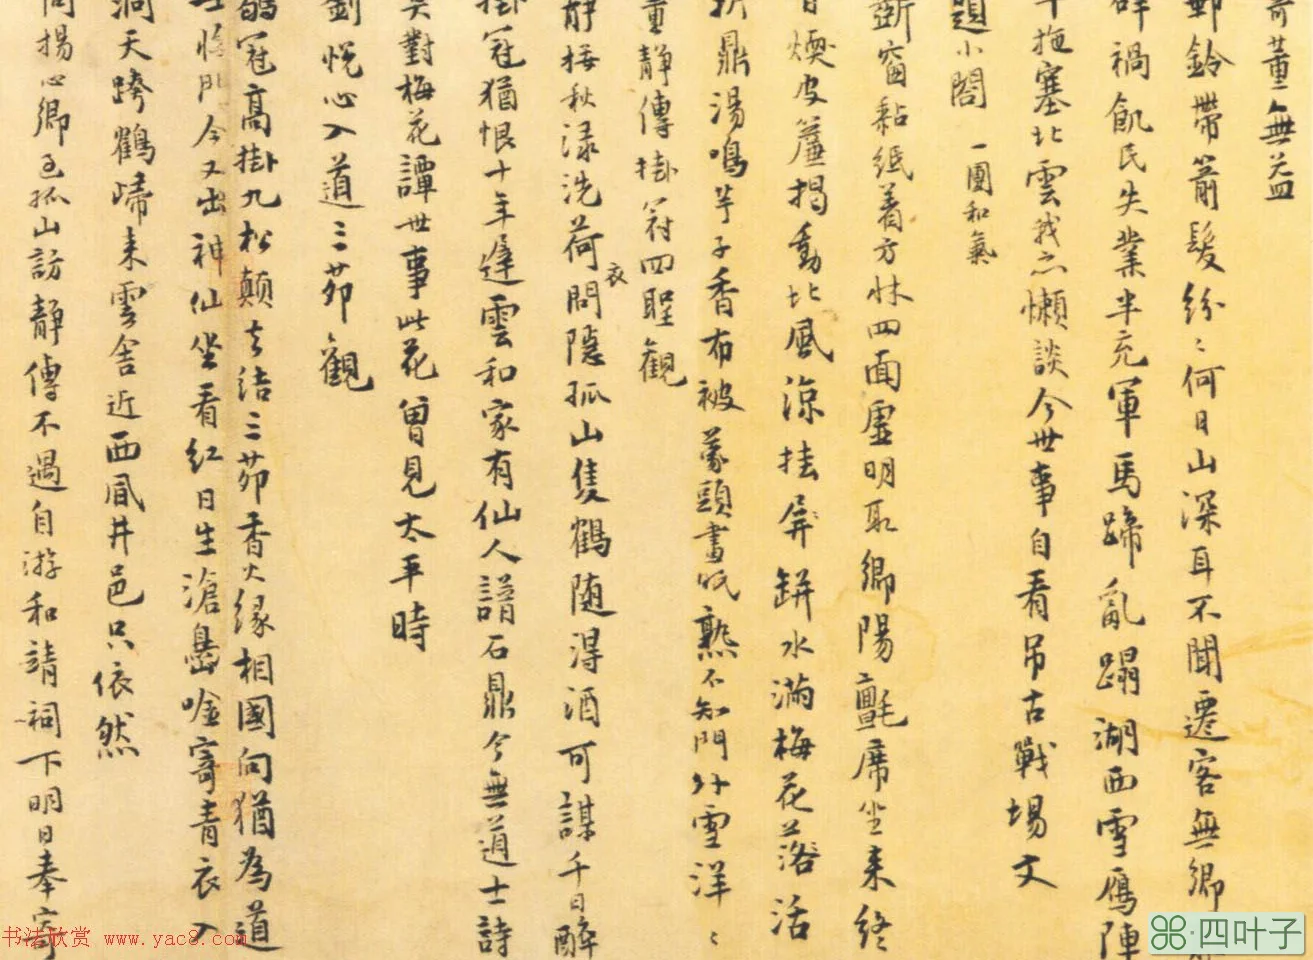 寄董無益
郵鈴帶箭髮紛〻何日山深耳不聞遷客無鄉
辟禍飢民失業半充軍馬蹄亂蹋湖西雪鴈陣
拖塞北雲我亦懶談今世事自看弔古戰場文
題小閣 一團和氣
斷窗黏紙着方牀四面虛明取鄉陽氈席坐来終
日煗皮簾揭動北風涼挂屏缾水滿梅花落活
折鼎湯鳴芋子香布被蒙頭書味熟不知門外雪洋〻
董靜傳掛冠四聖觀
靜接秋渌洗荷衣問隱孤山隻鶴随得酒可謀千日醉
掛冠猶恨十年遲雲和家有仙人譜石鼎今無道士詩
笑對梅花譚世事此花曾見太平時
劉悅心入道三茆觀
鶡冠高掛九松顛去結三茆香火缘相國向猶為道
士悟門今又出神仙坐看紅日生滄島唫寄青衣入
洞天跨鶴歸来雲舍近西風井邑只依然
同楊心卿至孤山訪靜傳不遇自游和靖祠下明日奉寄
书法欣赏 www.yac8.com
四叶子